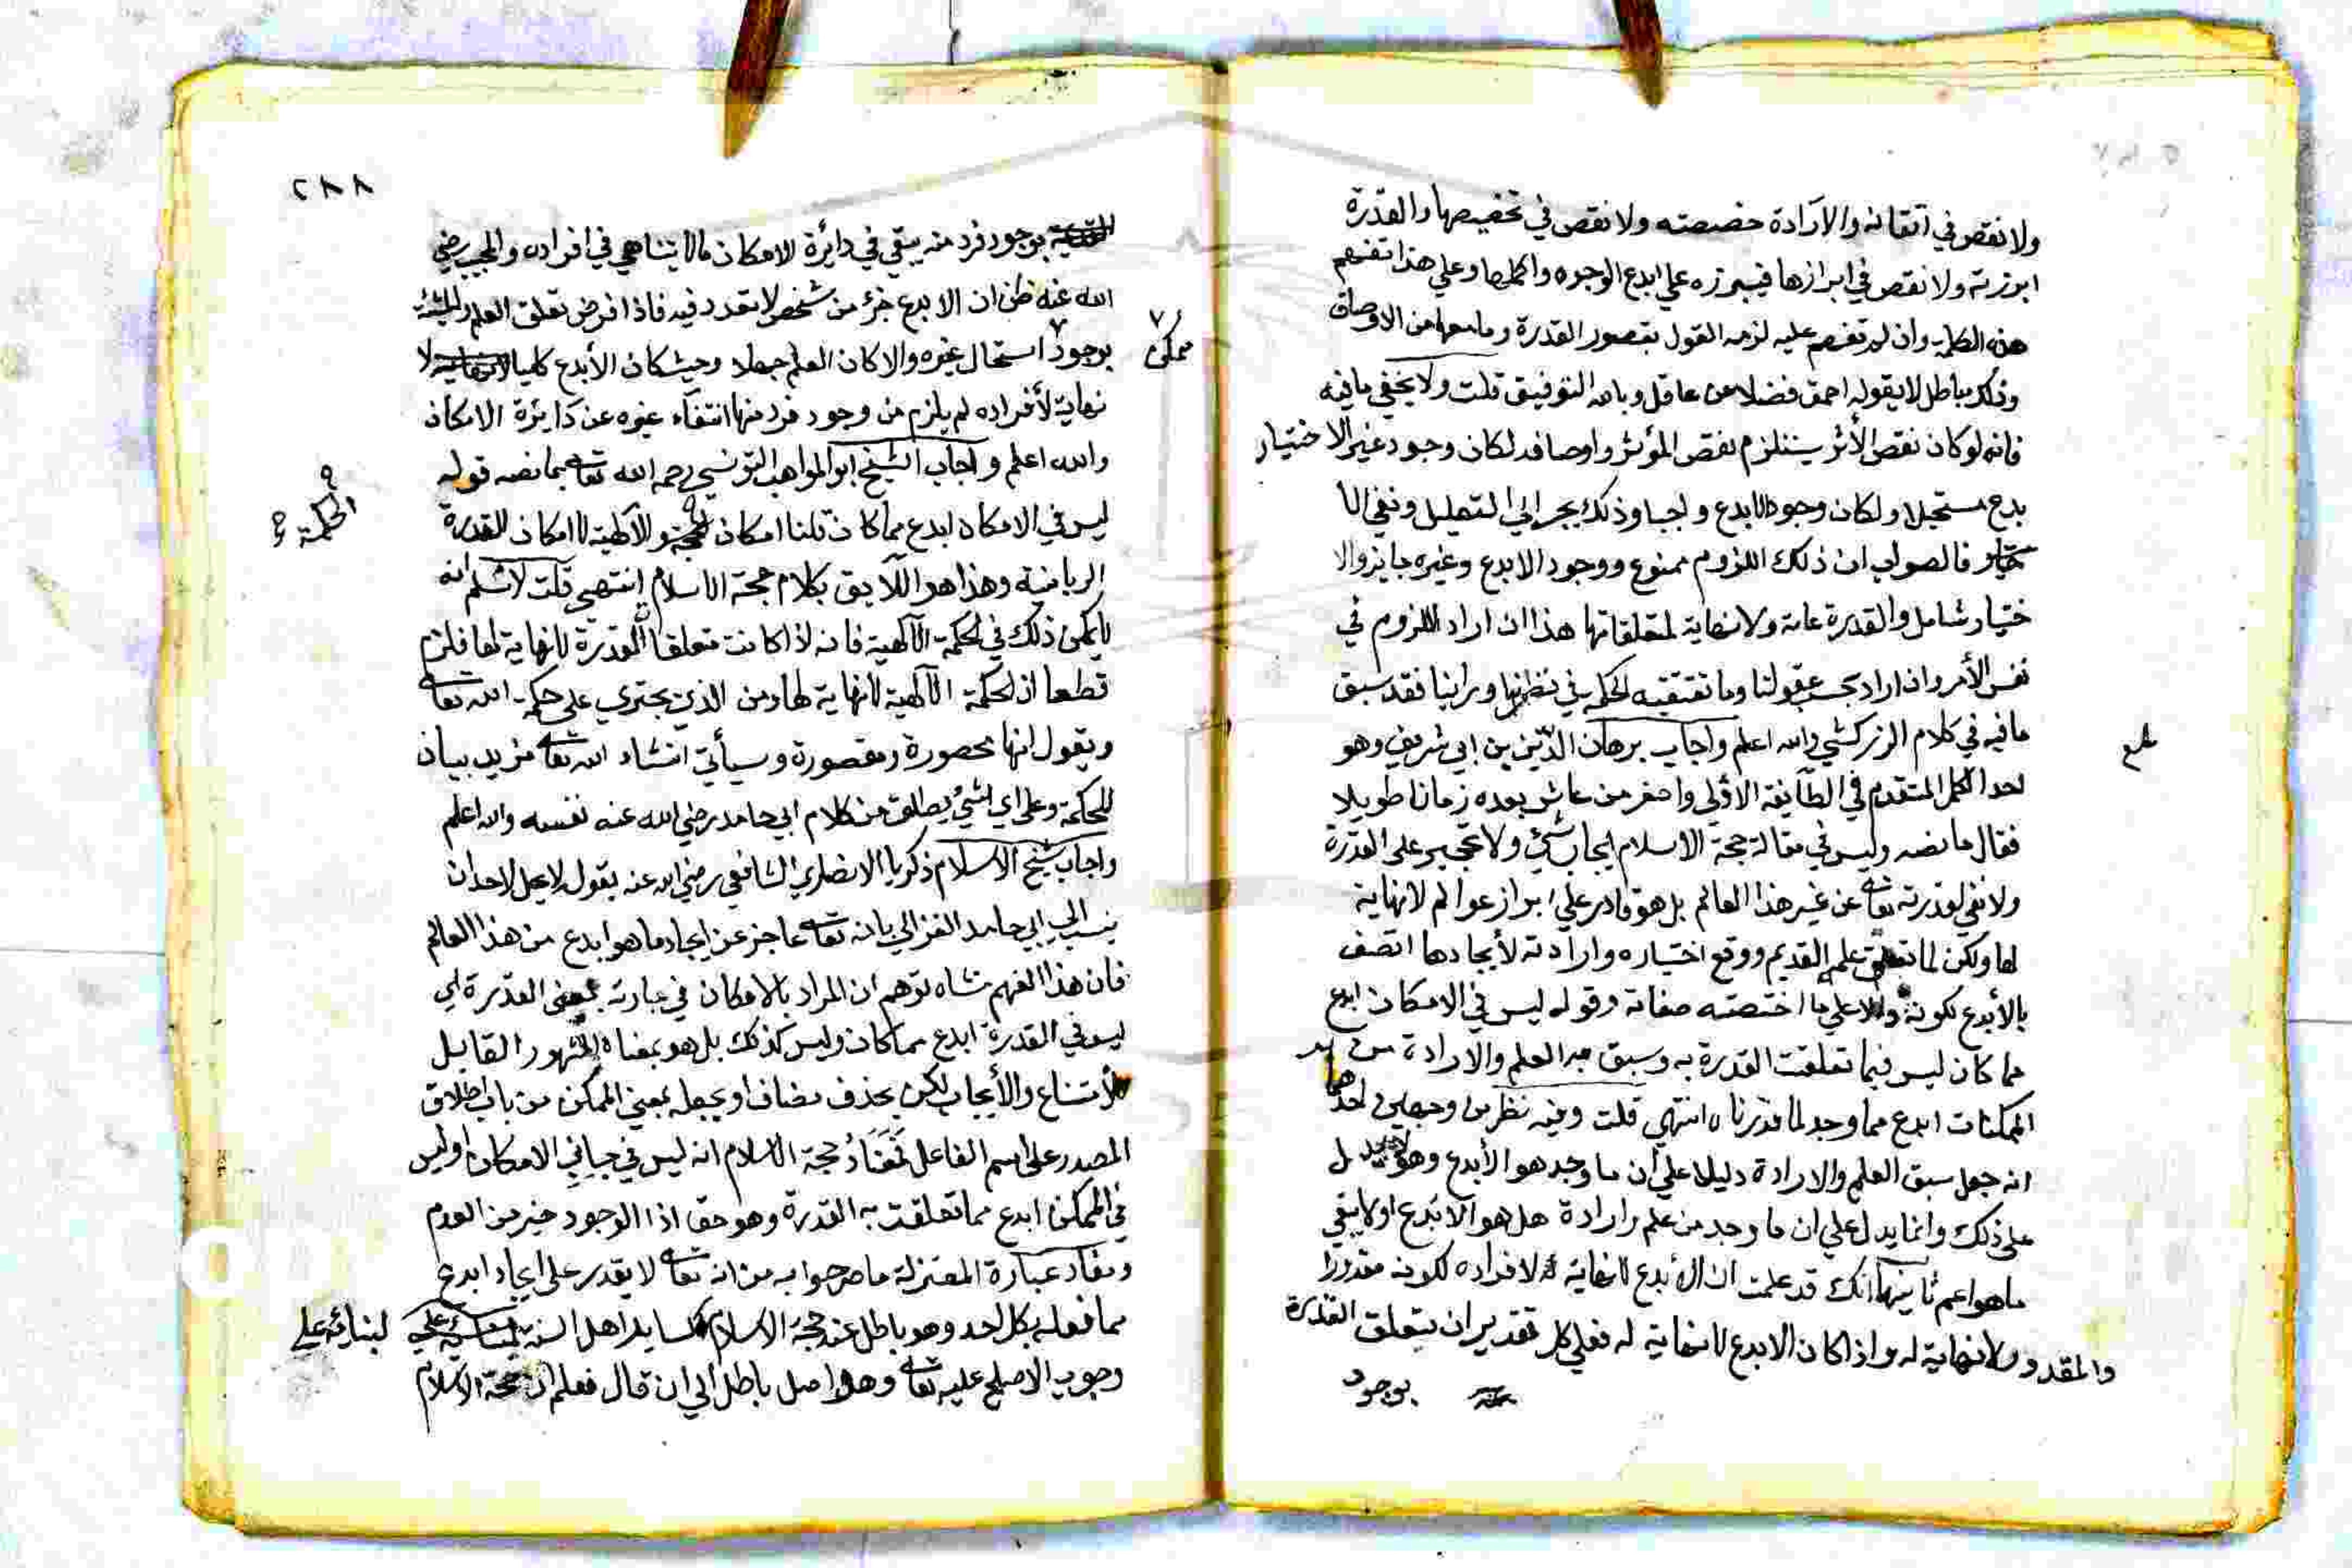 ولا نقص في اتقانه والارادة خصصته ولا نقص في تخصيصها والقدرة
ابرزته ولا نقص في ابرازها فيبرزه علي ابدع الوجوه واكملها وعلي هذا تفهم
هذه الكلمة وان لم تفهم عليه لزمه القول بقصور القدرة وما معها من الاوصاف
وذلك باطل لا يقوله احمق فضلا عن عاقل وبالله التوفيق قلت ولا يخفي ما فيه
فانه لو كان نقص الأثر يستلزم نقص المؤثر واوصافه لكان وجود غير الا ختيار
بدع مستحيلا ولكان وجود الابدع واجبا وذلك يجر الي التعليل ونفي الا
فالصواب ان ذلك اللزوم ممنوع ووجود الابدع وغيره جايز والا
ختيار شامل والقدرة عامة ولا نهاية لمتعلقاتها هذا ان اراد اللزوم في
نفس الأمر وان اراد بحسب عقولنا وما تقتضيه الحكمة في نظرنا وراينا فقد سبق
ما فيه في كلام الزركشي والله اعلم واجاب برهان الدين بن ابي شريف وهو
احد الكمل المتقدم في الطآيفة الاولي واصغر من عاش بعده زمانا طويلا
فقال ما نصه وليس في مقالة حجة الاسلام ايجاب شيء ولا تحجير على القدرة
ولا نفي لقدرته تعا عن غير هذا العالم بل هو قادر علي ابراز عوالم لا نهاية
لها ولكن لما تعلق علمه القديم ووقع اختياره وارادته لأيجادها اتصف
بالأبدع لكونه دالا علي ما اختصته صفاته وقوله ليس في الامكان ابدع
مما كان ليس فيما تعلقت القدرة به وسبق به العلم والارادة من
الممكنات ابدع مما وجد لما قررناه انتهي قلت وفيه نظر من وجهين احدهما
انه جعل سبق العلم والارادة دليلا علي أن ما وجد هو الأبدع وهو لا يدل
على ذلك وانما يدل علي ان ما وجد من علم وارادة هل هو الأبدع او لا يبقي
ما هو اعم ثانيهما انك قد علمت ان الأبدع لا نهاية لافراده لكونه مقدورا
والمقدور لا نهاية له واذا كان الابدع لا نهاية له فعلي كل تقدير ان يتعلق القدرة
بوجود
٢٨٨
بوجود فرد منه يبقي في دايرة الامكان ما لا يتناهي في افراده والمجيب رضي
الله عنه ظن ان الابدع جزء من شخص لا تعدد فيه فاذا فرض تعلق العلم والمشيئة
بوجود استحال غيره والا كان العلم جهلا وحيث كان الأبدع كليا لا
ممكن
نهاية لأفراده لم يلزم من وجود فرد منها انتفاء غيره عن دايرة الامكان
والله اعلم واجاب الشيخ ابو المواهب التونسي رحمه الله تعا بما نصه قوله
ليس في الامكان ابدع مما كان قلنا امكان الالهية لا امكان القدرة
الحكمة
الربانية وهذا هو اللآيق بكلام حجة الاسلام انتهي قلت لا نسلم انه
لا يمكن ذلك في الحكمة الالهية فانه اذا كانت متعلقا القدرة لا نهاية لها فلزم
قطعا ان الحكمة الالهية لا نهاية لها ومن الذي يجتري على حكمة الله تعا
ويقول انها محصورة ومقصورة وسيأتي انشاء الله تعا مزيد بيان
للحكمة وعلى اي شيء يطلق من كلام ابي حامد رضي الله عنه نفسه والله اعلم
واجاب شيخ الاسلام زكريا الانصاري الشافعي رضي الله عنه بقوله لا يحل لاحد ان
ينسب الي ابي حامد الغزالي بانه تعا عاجز عن ايجاد ما هو ابدع من هذا العالم
فان هذا الفهم منشاه توهم ان المراد بالامكان في عبارته بمعني القدرة اي
ليس في القدرة ابدع مما كان وليس كذلك بل هو بمعناه المشهور القابل
لأمتناع والأيجاب لكن بحذف مضاف او بجعله بمعني الممكن من باب اطلاق
المصدر على اسم الفاعل فمفاد حجة الاسلام انه ليس في جانب الامكان او ليس
في الممكن ابدع مما تعلقت به القدرة وهو حق اذ الوجود خير من العدم
ومفاد عبارة المعتزلة ما صرحوا به من انه تعا لا يقدر على ايجاد ابدع
مما فعله بكل احد وهو باطل عند حجة الاسلام كساير اهل السنة لبنائه علي
وجوب الاصلح عليه تعا وهو اصل باطل الي ان قال فعلم ان حجة الاسلام